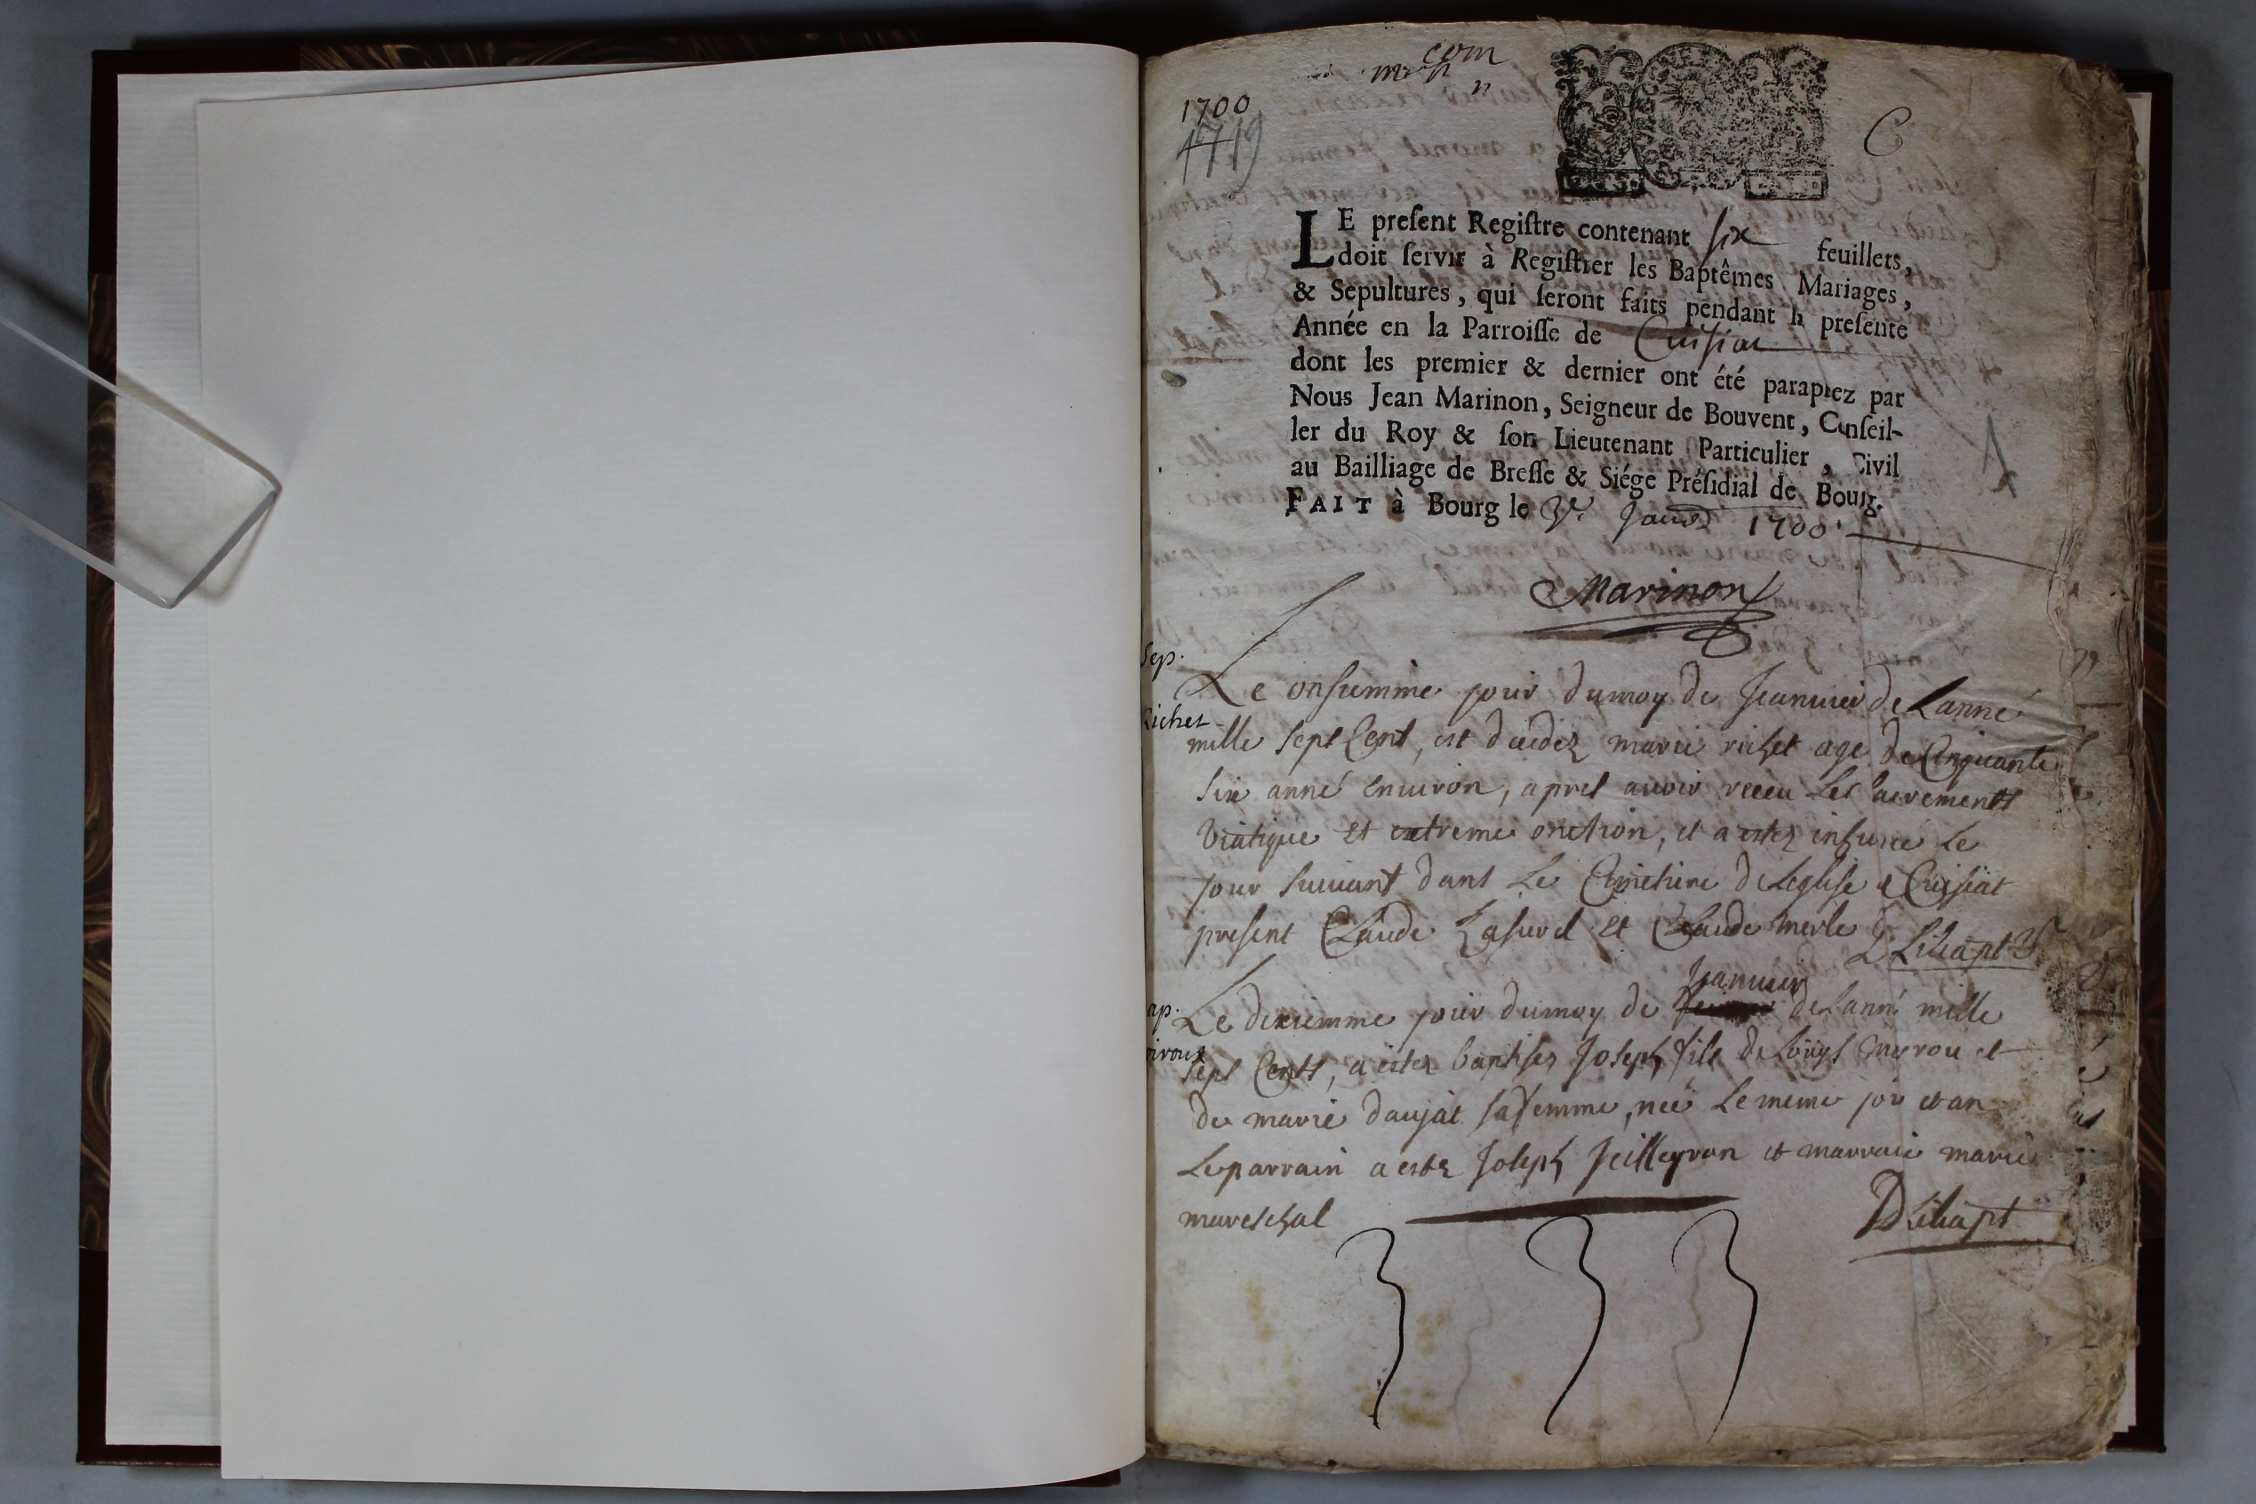 1700
1719
C
LE preſent Regiſtre contenant six feuillets,
doit ſervir à Regiſtrer les Baptêmes Mariages,
& Sepultures, qui ſeront faits pendant la preſente
Année en la Parroiſſe de Cuisiat
dont les premier & dernier ont été paraprez par
Nous Jean Marinon, Seigneur de Bouvent, Conſeil-
ler du Roy & ſon Lieutenant Particulier, Civil
au Bailliage de Breſſe & Siége Préſidial de Bourg.
FAIT à Bourg le 3e. Janvier 1700.
Marinon
Sep.
Richet
Le onsiemme jour du moy de Jeanvier de Lanné
mille sept Cent, est decidez marie richet age de Cinquante
six anné environ, apres avoir receu Les sacrements
viatique et extreme onction, et a estez insuree Le
jour suivant dans Le Cimetiere de Leglise de Cuisiat
present Claude et Claude merle
ap.
Le dixiemme jour du moy de Jeanvier de Lanné mille
sept Cents, a estez baptisez Joseph fils de Louys meyrou et
de marie daujat sa femme, née Le meme jour et an
Le parrain a estez Joseph et marraine marie
mareschal